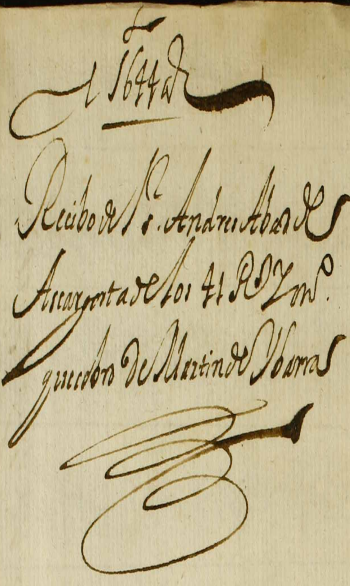 1644 a
Recibo del Sr. Andres Abad de
Ascargorta de los 41 Rs. y mo.
que cobro de Martin de Ybarra